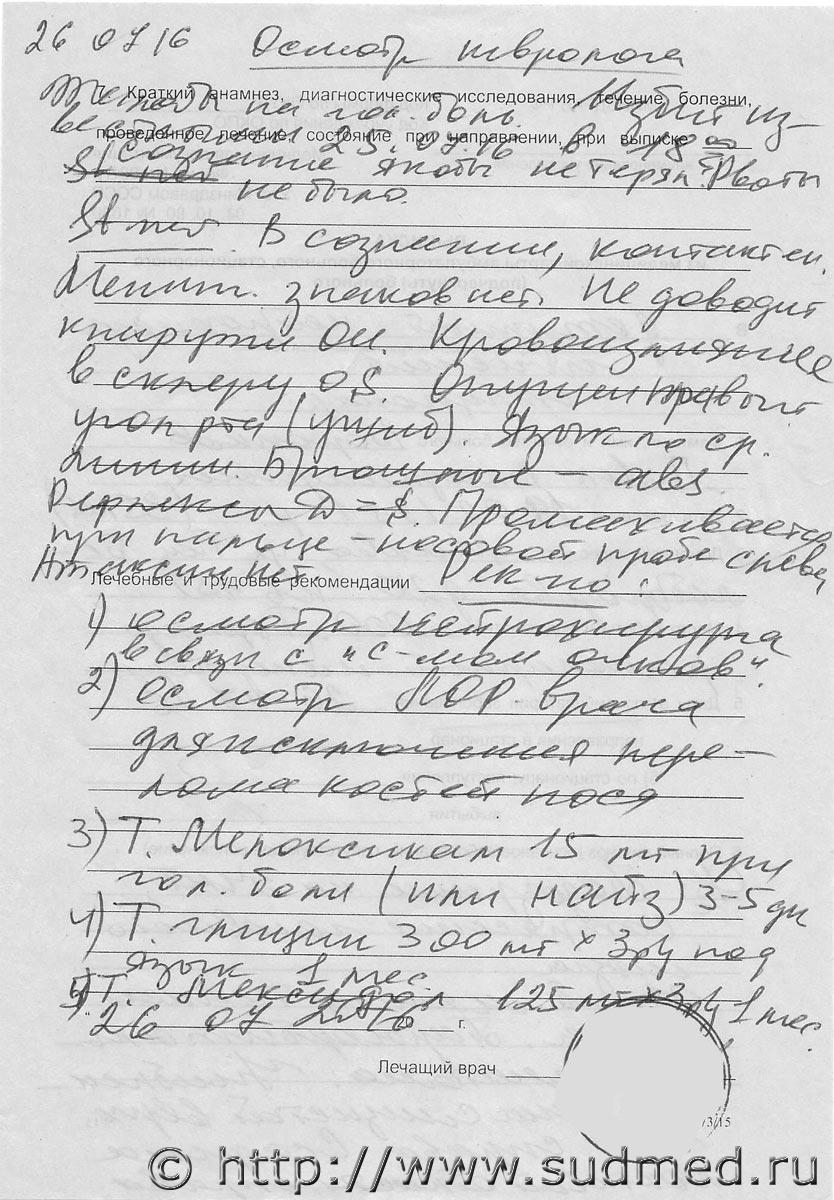 26 07 16 Осмотр невролога
Жалобы на гол. боль. Избит из-
Краткий анамнез, диагностические исследования, течение болезни,
вестными 25.07.16 в
проведенное лечение, состояние при направлении, при выписке
сознание якобы не терял. Рвоты
не было.
St nev. В сознании, контактен.
Менинг. знаков нет. Не доводит
кнаружи ОИ. Кровоизлияние
в склеру OS. Опущен правый
угол рта (ушиб). Язык по ср.
линии. Брюшные – abs.
Рефлексы D = S. Промахивается
при пальце-носовой пробе слева,
Атаксии нет. Рек-но:
Лечебные и трудовые рекомендации
1) осмотр нейрохирурга
в связи с "с-мом очков".
2) Осмотр ЛОР врача
для исключения пере-
лома костей носа
3) Т. Мелоксикам 15 мг при
гол. боли (или найз) 3-5 дн
4) Т. глицин 300 мг х 3р/д под
язык 1 мес.
5) Т. Мексидол 125 мг х 3р/д 1 мес.
26 07 2016 г.
Лечащий врач
3/15
© http://www.sudmed.ru